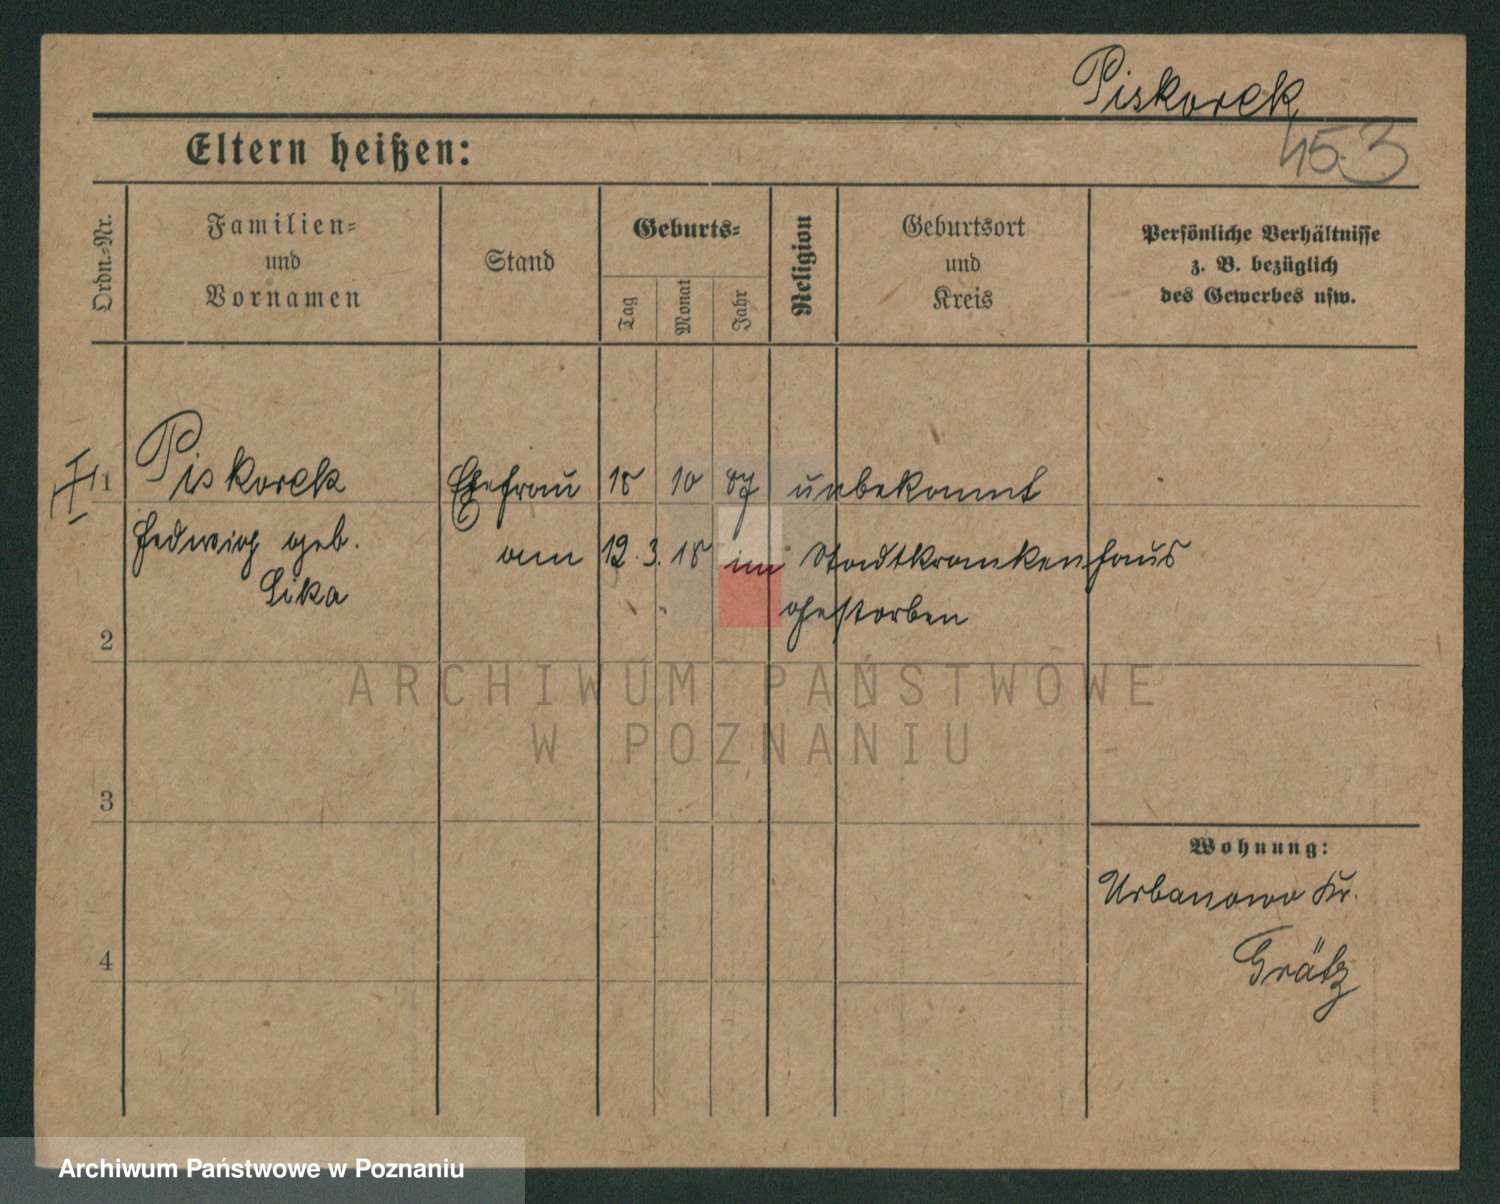 Piskorek
Eltern heißen:
453
Ordn.-Nr.
Familien-
und
Vornamen
Stand
Geburts-
Tag
Monat
Jahr
Religion
Geburtsort
und
Kreis
Persönliche Verhältnisse
z. B. bezüglich
des Gewerbes usw.
1 Piskorek Ehefrau 18 10 87 unbekannt
Hedwig geb. am 12. 3. 18 im Stadtkrankenhaus
Sika gestorben
2
ARCHIWUM PAŃSTWOWE
W POZNANIU
3
Wohnung:
Urbanowo Kr.
Grätz
4
Archiwum Państwowe w Poznaniu